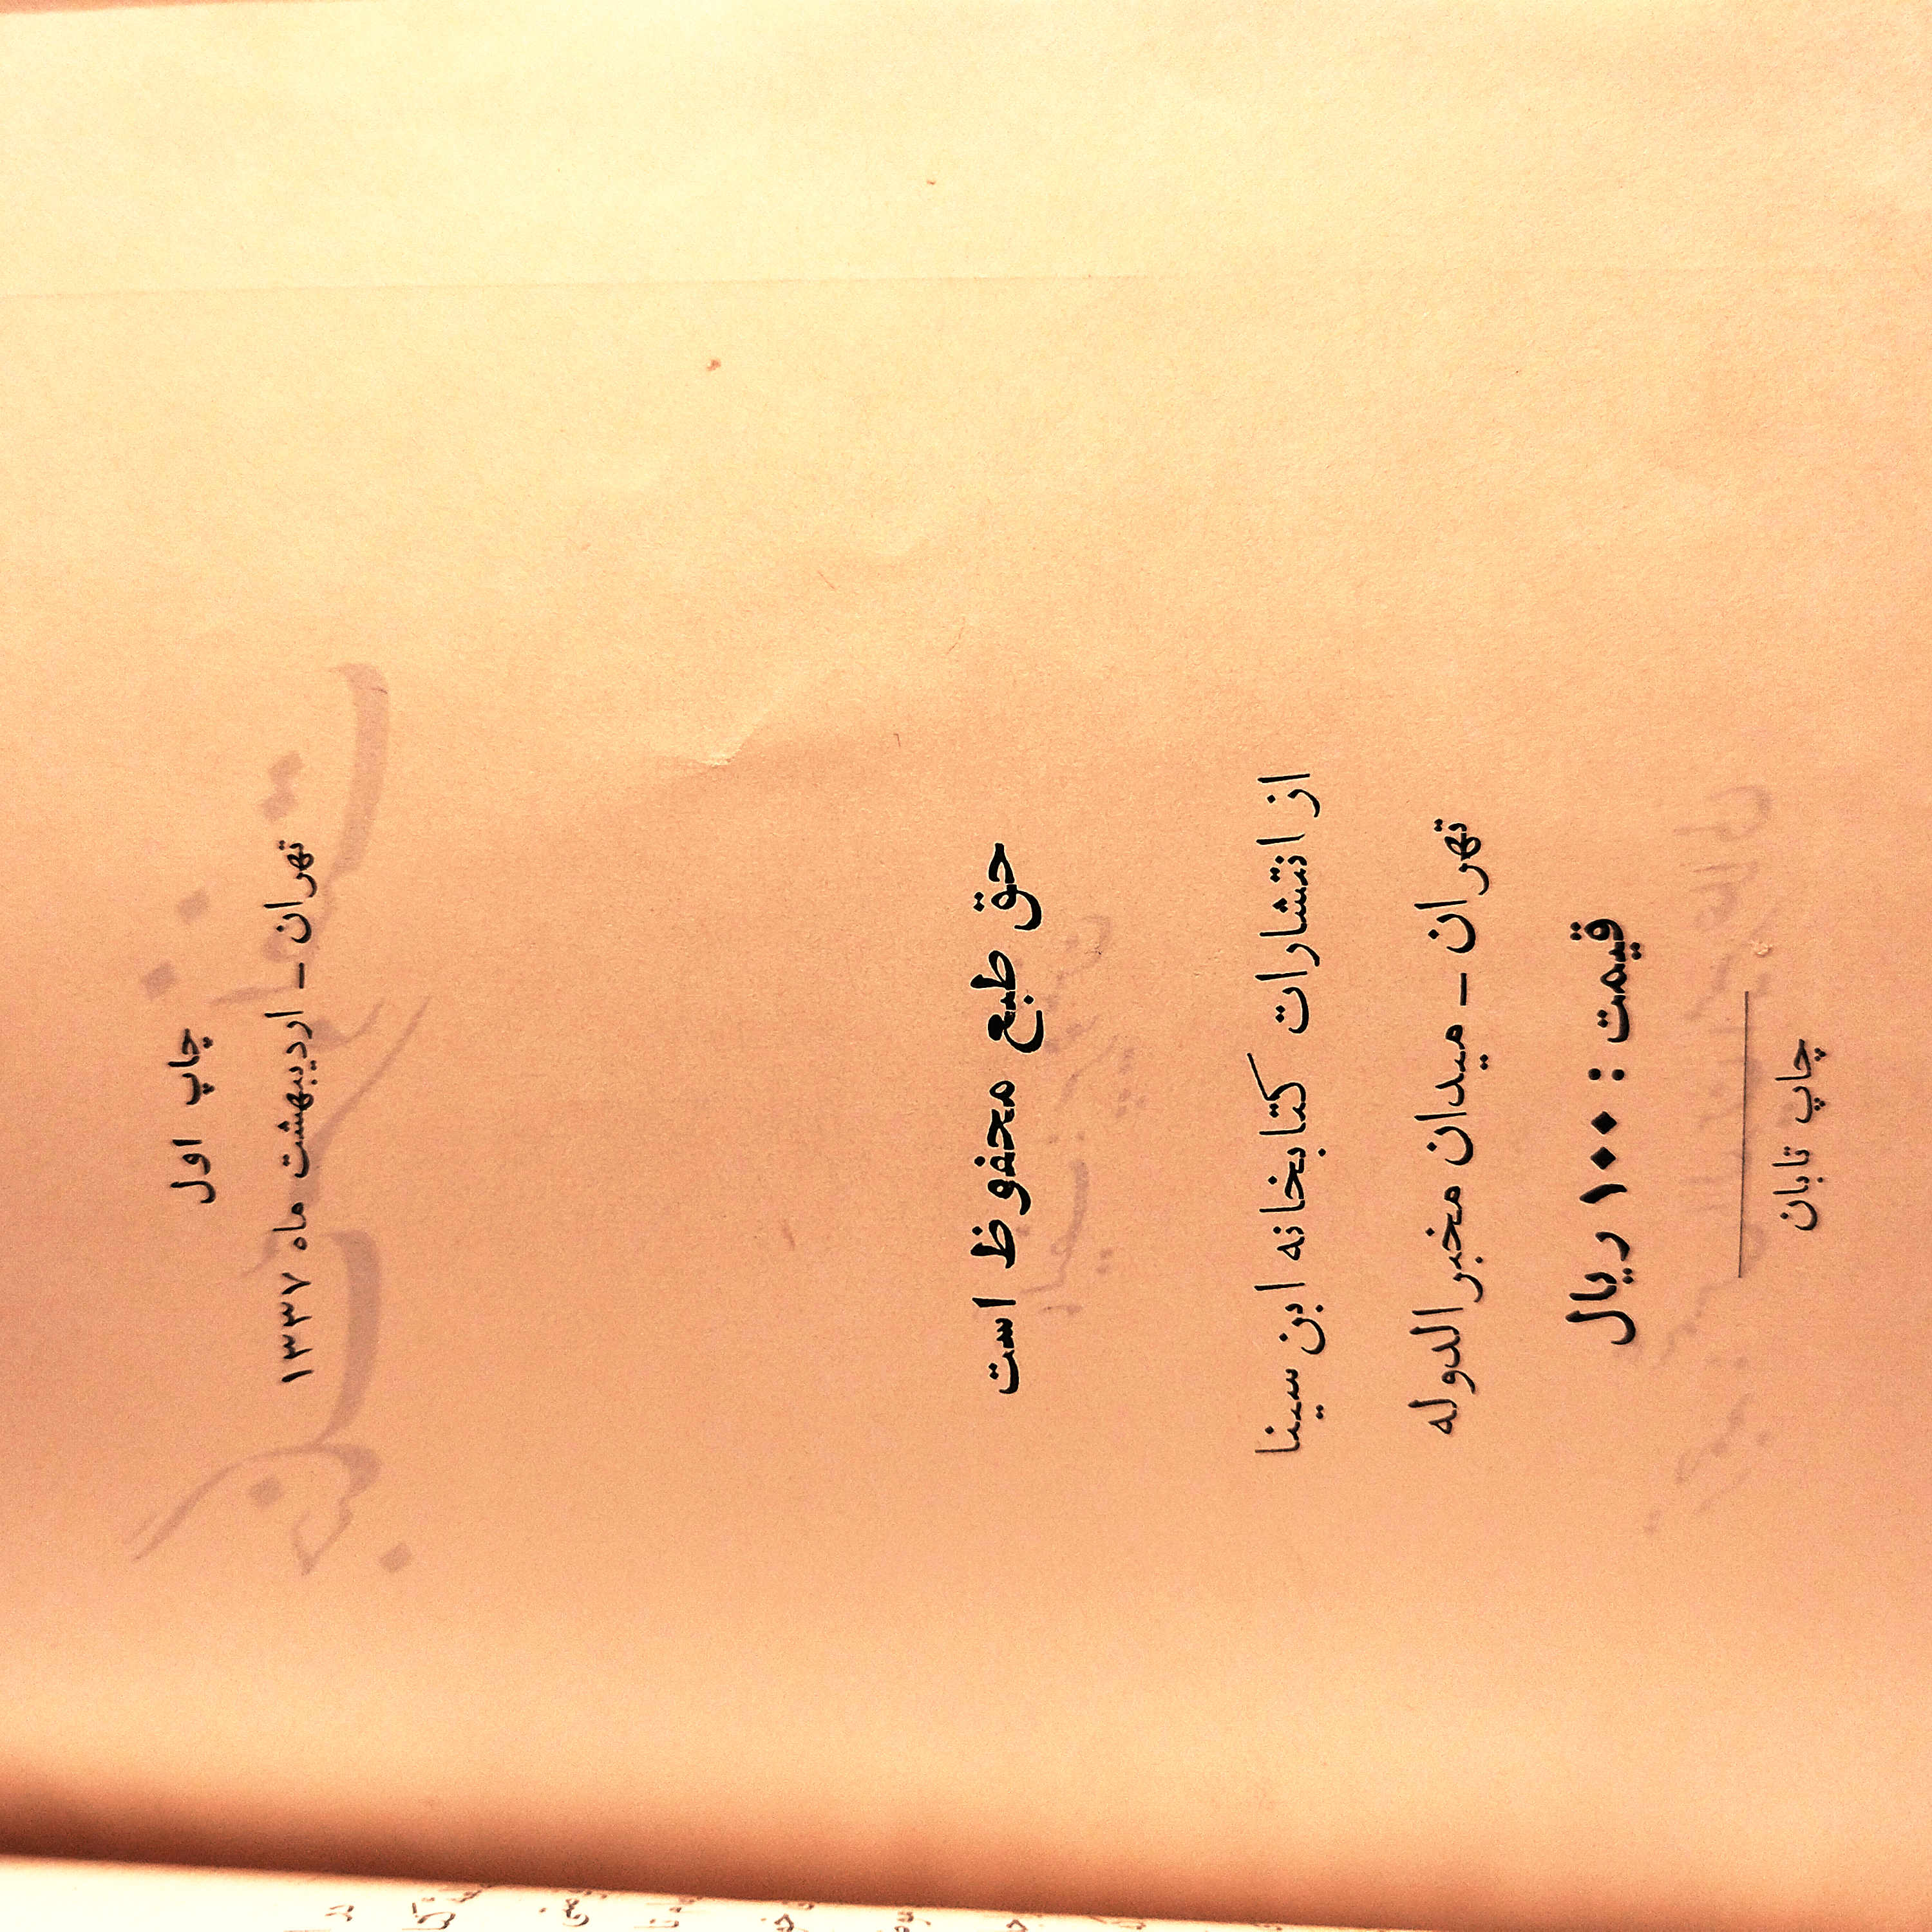 چاپ اول
تهران - اردیبهشت ماه ۱۳۳۷
حق طبع محفوظ است
از انتشارات کتابخانه ابن سینا
تهران - میدان مخبرالدوله
قیمت : ۱۰۰ ریال
چاپ تابان